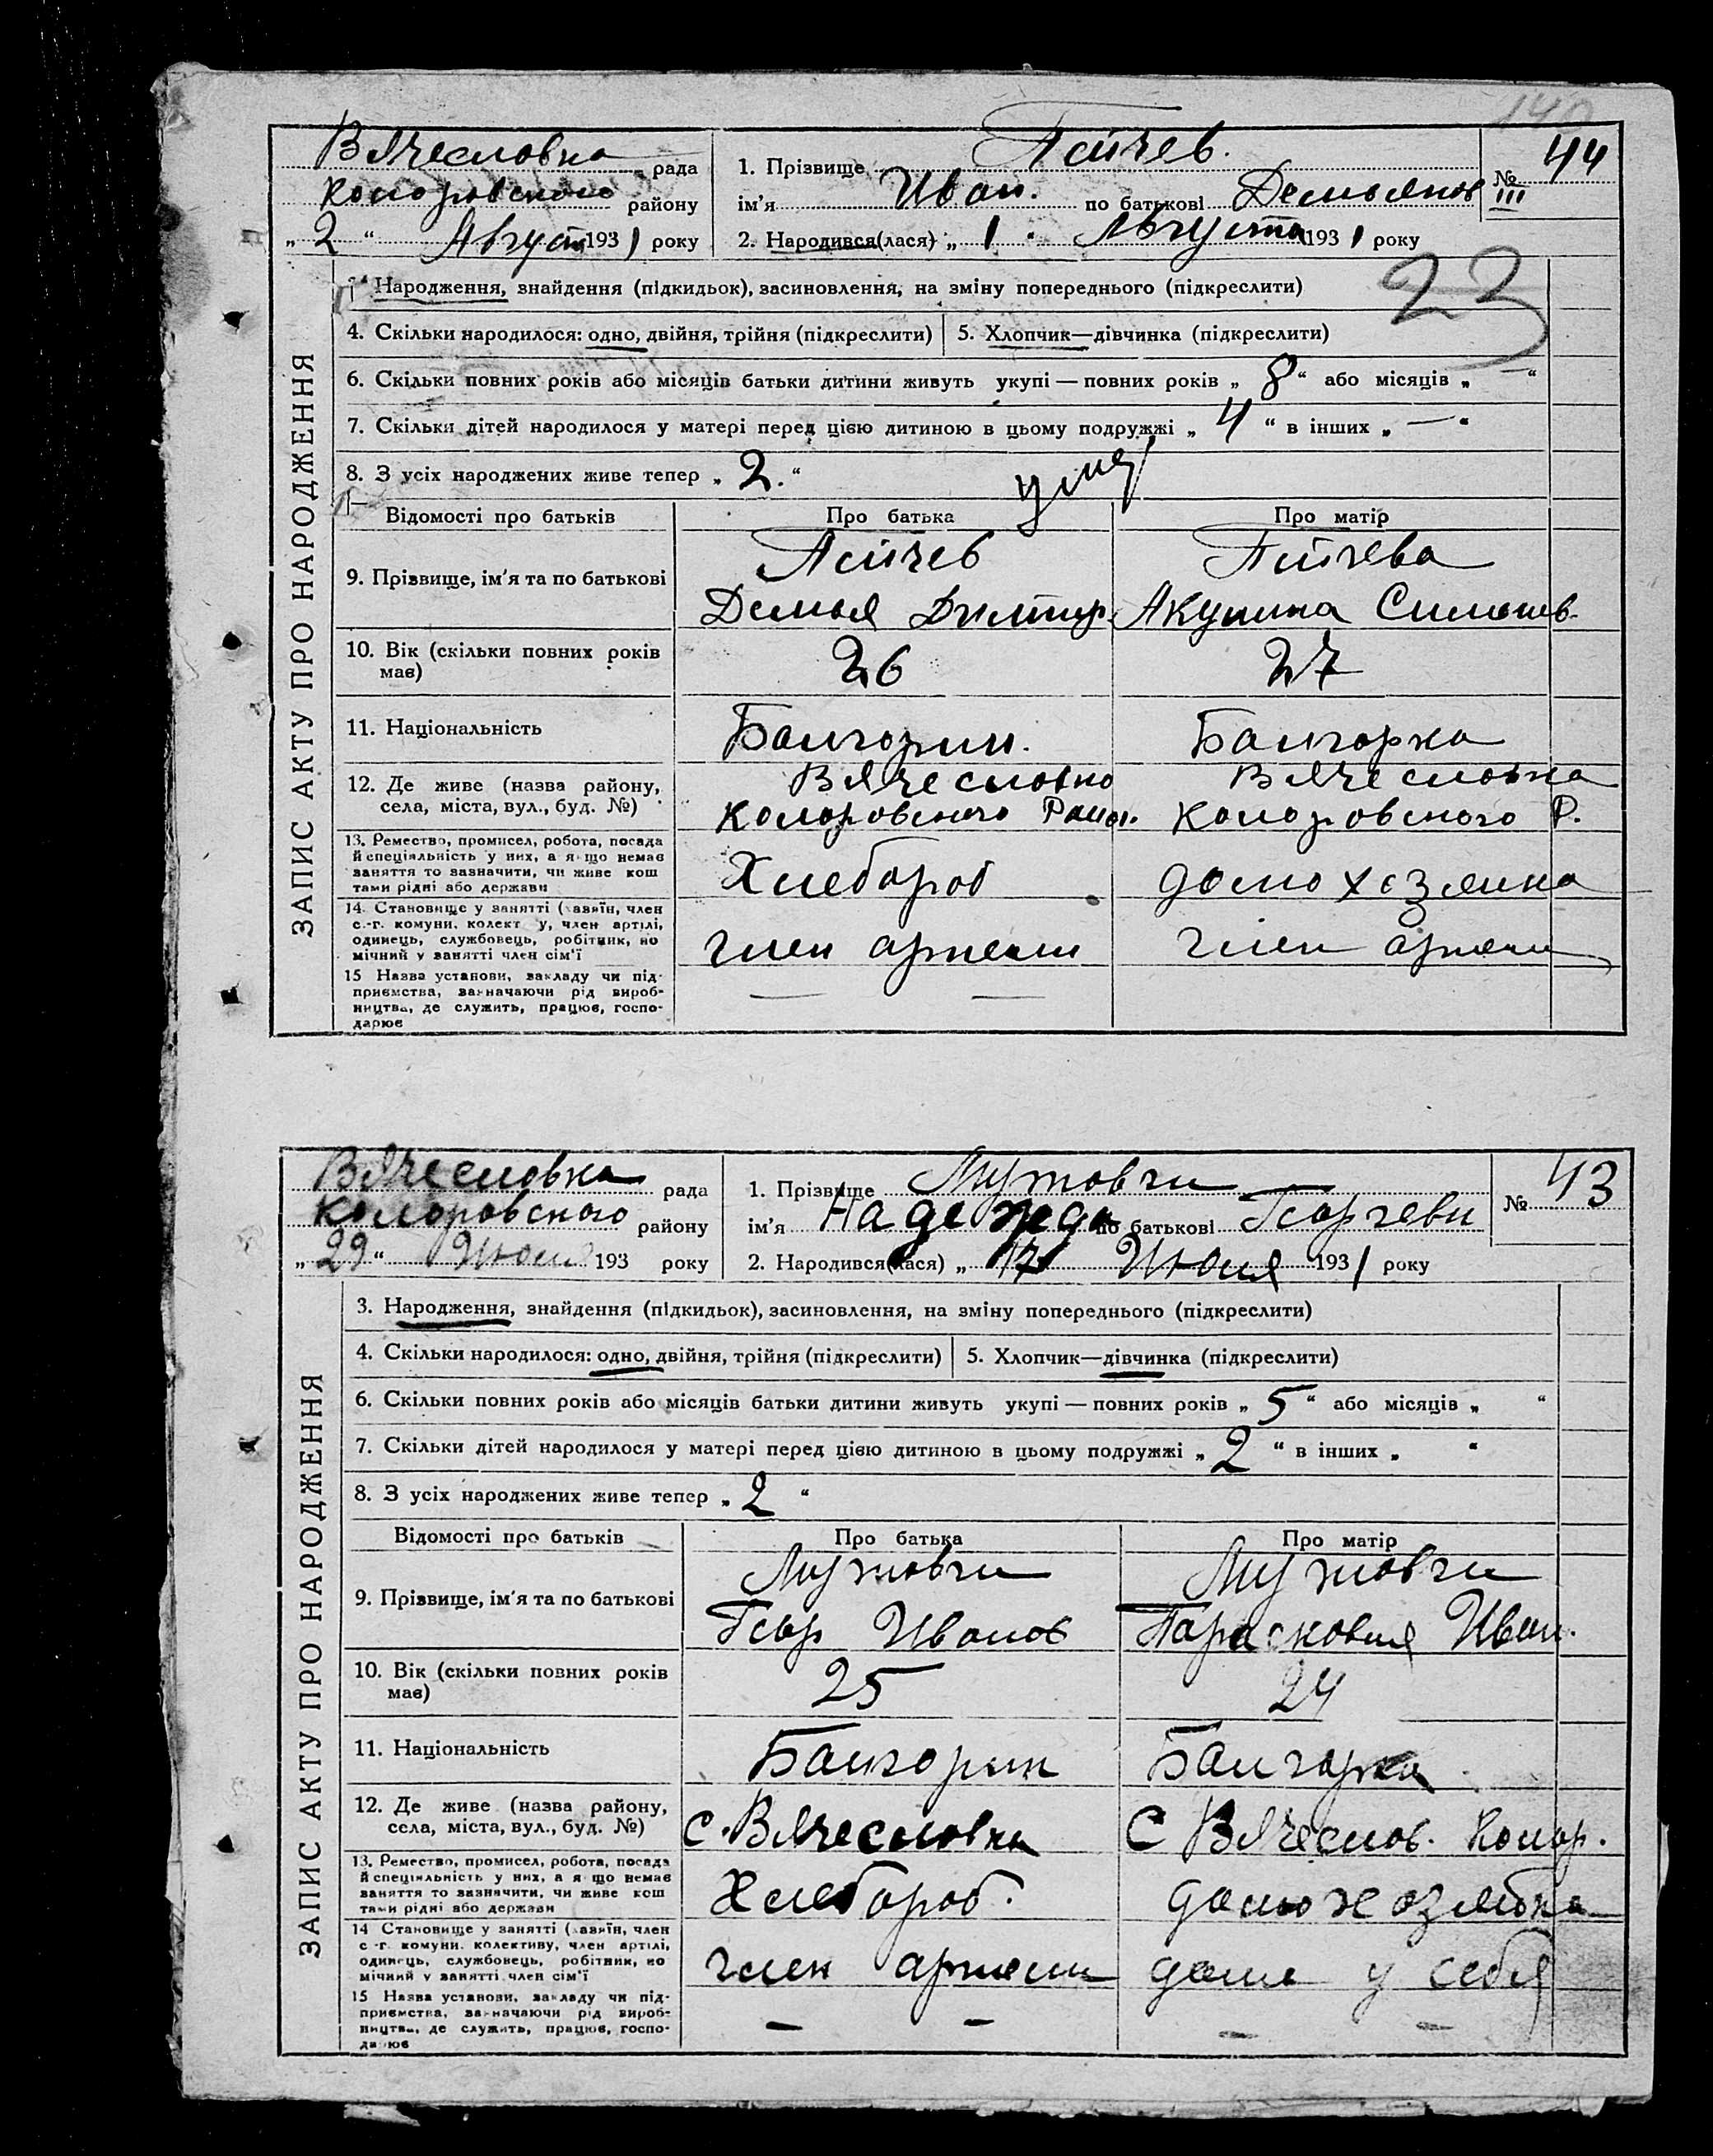 140
Вячесловка рада
Коларовского району
„ 2 “ Август 1931 року
1. Прізвище Пейчев.
ім'я Иван. по батькові Демьянов
2. Народився(лася) „ 1 “ Августа 1931 року
№ 44
III
ЗАПИС АКТУ ПРО НАРОДЖЕННЯ
Народження, знайдення (підкидьок), засиновлення, на зміну попереднього (підкреслити)
23
4. Скільки народилося: одно, двійня, трійня (підкреслити) 5. Хлопчик—дівчинка (підкреслити)
6. Скільки повних років або місяців батьки дитини живуть укупі — повних років „ 8 “ або місяців „ — “
7. Скільки дітей народилося у матері перед цією дитиною в цьому подружжі „ 4 “ в інших „ — “
8. З усіх народжених живе тепер „ 2. “
умер
Відомості про батьків Про батька Про матір
9. Прізвище, ім'я та по батькові
Пейчев Пейчева
Демья Димитр. Акулина
10. Вік (скільки повних років має) 26 27
11. Національність Болгорин. Болгорка
12. Де живе (назва району, села, міста, вул., буд. №)
Вячесловка Вячесловка
Коларовского Район. Коларовского Р.
13. Ремество, промисел, робота, посада
й спеціяльність у них, а якщо немає
заняття то зазначити, чи живе кош
тами рідні або держави
Хлебороб домохозяика
14. Становище у занятті (хазяїн, член
с.-г. комуни, колективу, член артілі,
одинець, службовець, робітник, по
мічний у занятті член сім'ї
член артели член артели
15 Назва установи, закладу чи під-
приємства, зазначаючи рід вироб-
ництва, де служить, працює, госпо-
дарює
— —
Вячесловка рада
Коларовского району
„ 29 “ Июля 193 року
1. Прізвище Мутовчи
ім'я Надежда по батькові Георгеви
2. Народився(лася) „ 17 “ Июля 1931 року
№ 43
ЗАПИС АКТУ ПРО НАРОДЖЕННЯ
3. Народження, знайдення (підкидьок), засиновлення, на зміну попереднього (підкреслити)
4. Скільки народилося: одно, двійня, трійня (підкреслити) 5. Хлопчик—дівчинка (підкреслити)
6. Скільки повних років або місяців батьки дитини живуть укупі — повних років „ 5 “ або місяців „ “
7. Скільки дітей народилося у матері перед цією дитиною в цьому подружжі „ 2 “ в інших „ “
8. З усіх народжених живе тепер „ 2 “
Відомості про батьків Про батька Про матір
9. Прізвище, ім'я та по батькові
Мутовчи Мутовчи
Геор Иванов Парасковия Иван.
10. Вік (скільки повних років має) 25 24
11. Національність Болгорин Болгорка
12. Де живе (назва району, села, міста, вул., буд. №)
С. Вячесловка С Вячеслов. Колар.
13. Ремество, промисел, робота, посада
й спеціяльність у них, а якщо немає
заняття то зазначити, чи живе кош
тами рідні або держави
Хлебороб.
14 Становище у занятті (хазяїн, член
с.-г. комуни, колективу, член артілі,
одинець, службовець, робітник, по
мічний у занятті член сім'ї
член артели дома у себя
15 Назва установи, закладу чи під-
приємства, зазначаючи рід вироб-
ництва, де служить, працює, госпо-
дарює
— — — —